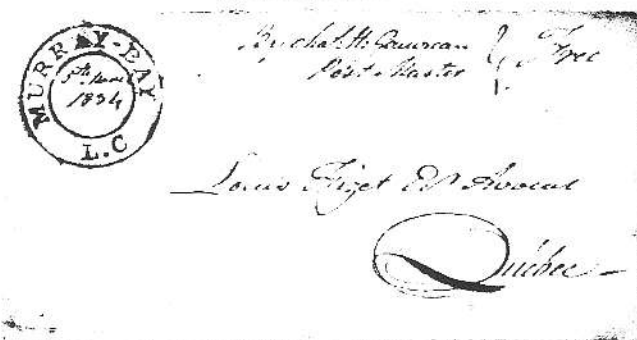 MURRAY-BAY
5th
1834
L.C
By chas. H. Gauvreau
Post Master
Free
Louis Fiset Esr Avocat
Québec